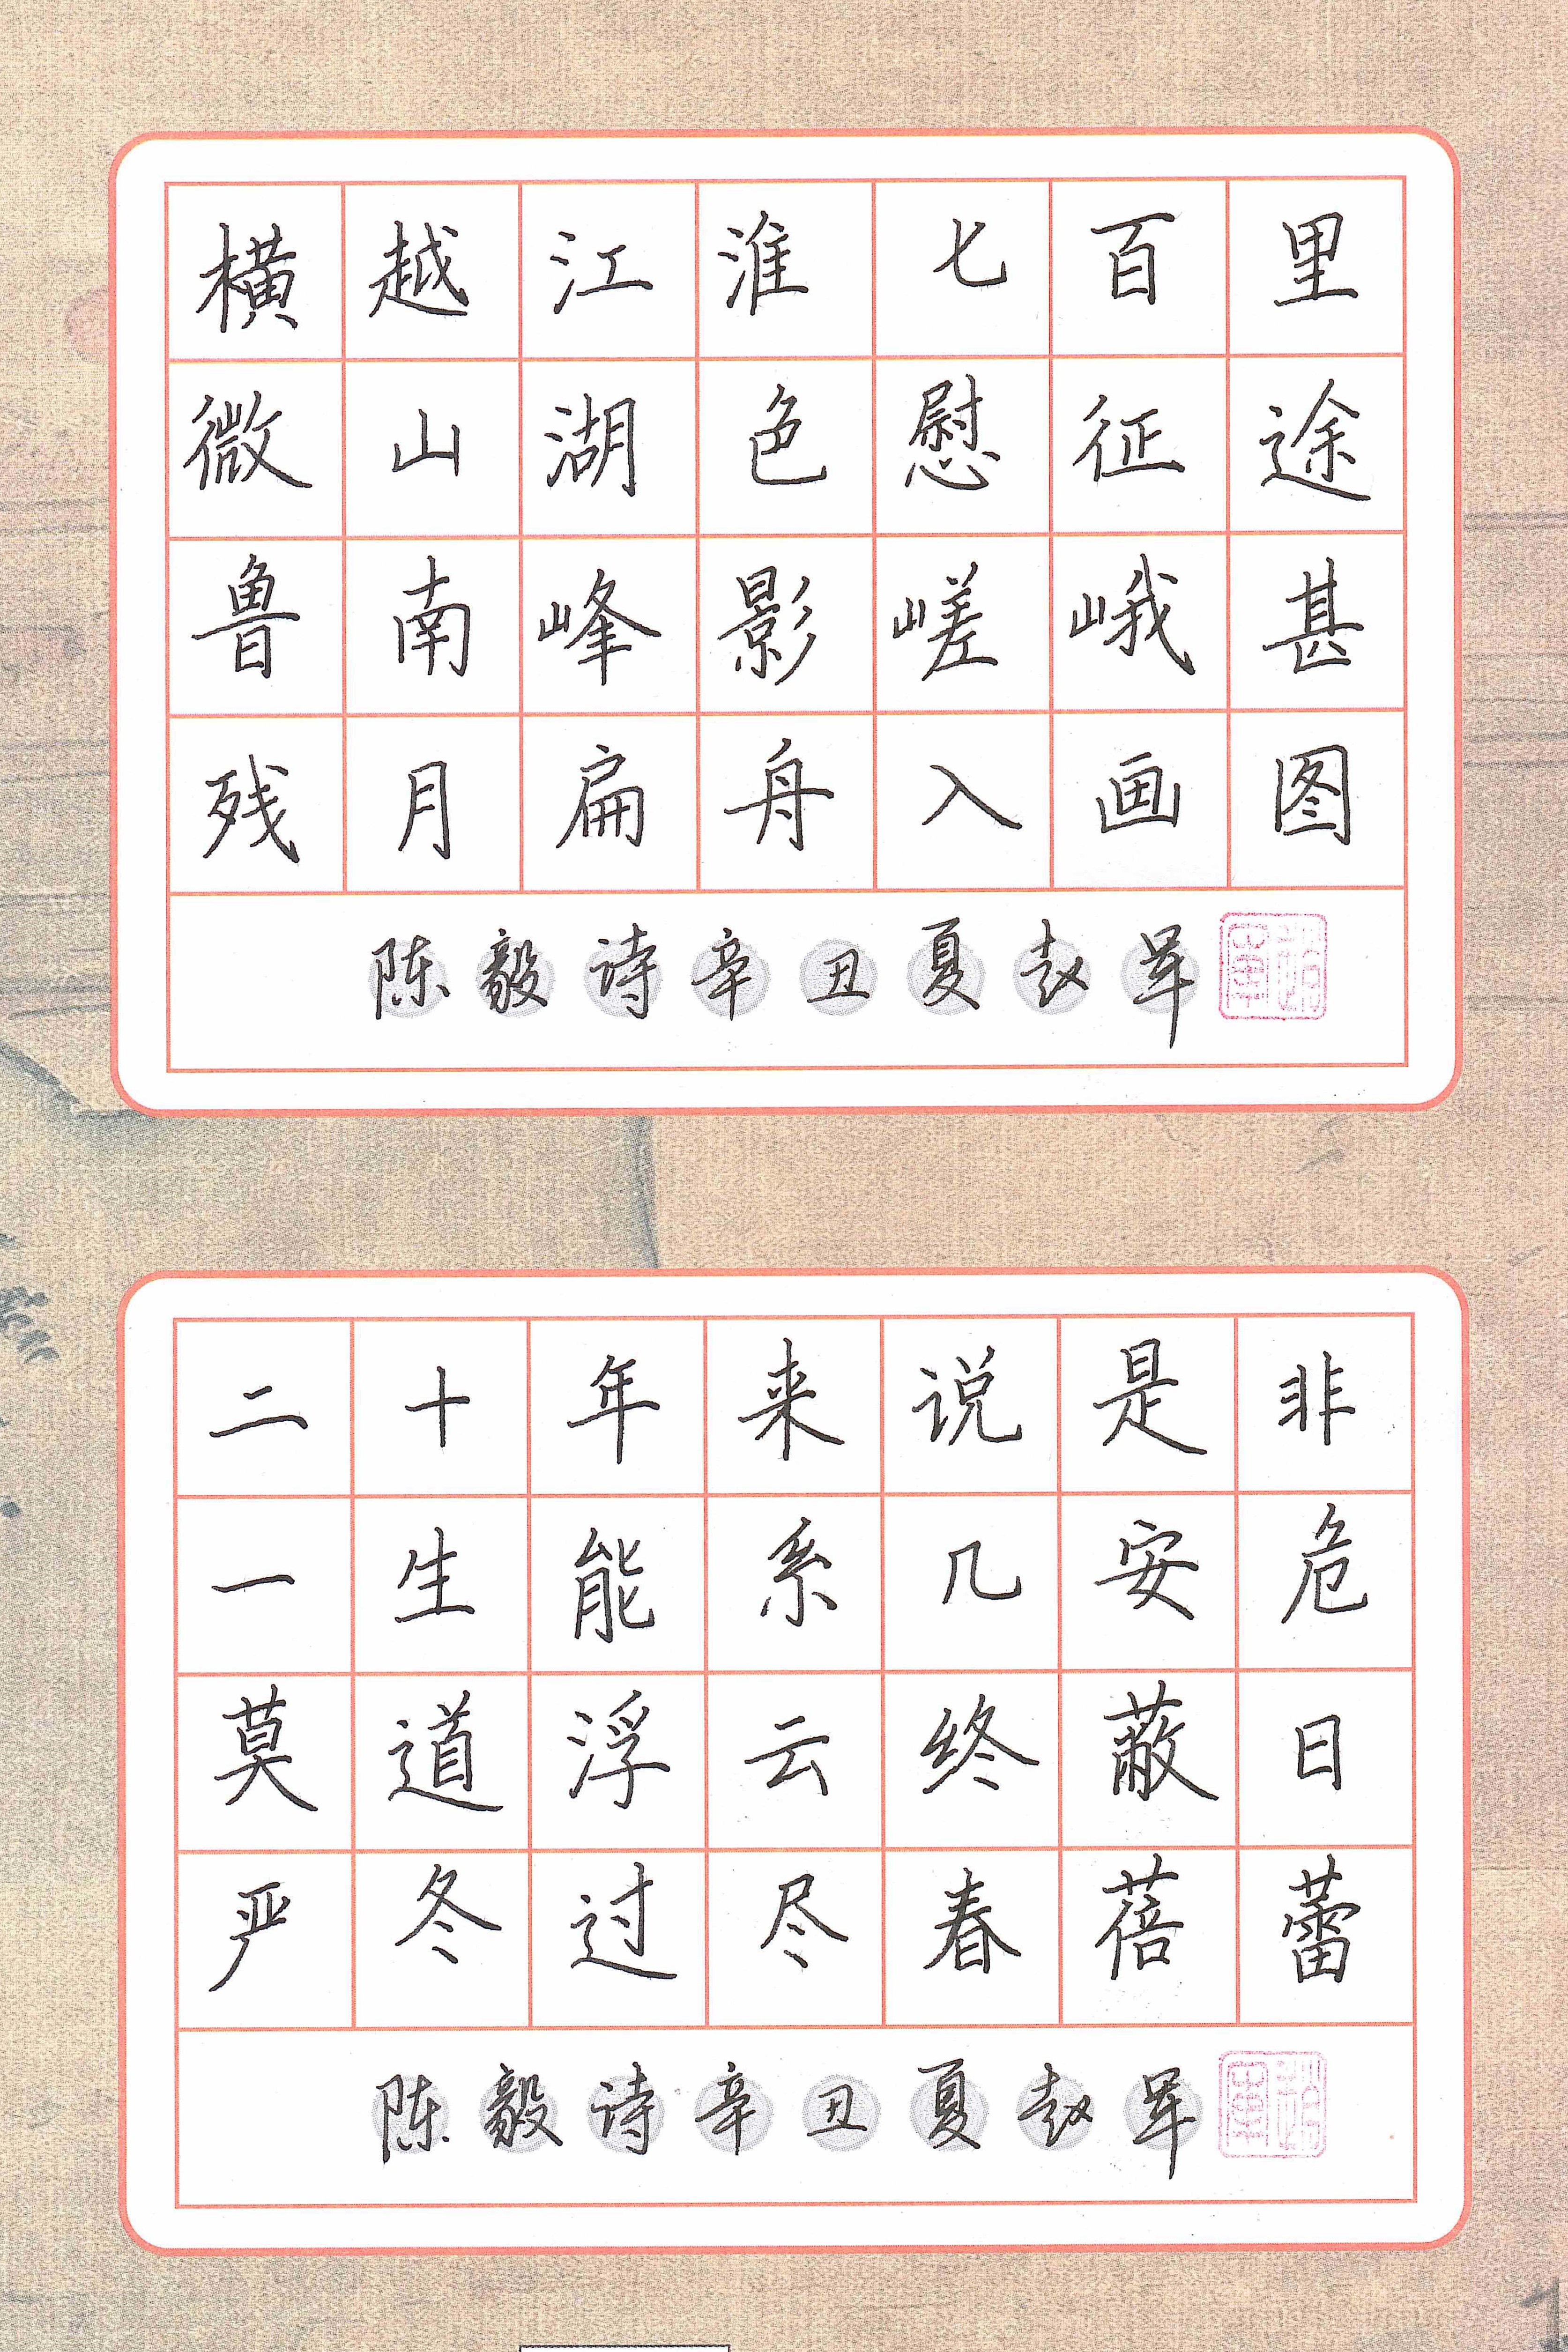 横越江淮七百里
微山湖色慰征途
鲁南峰影嵯峨甚
残月扁舟入画图
陈毅诗辛丑夏赵军
二十年来说是非
一生能系几安危
莫道浮云终蔽日
严冬过尽春蓓蕾
陈毅诗辛丑夏赵军